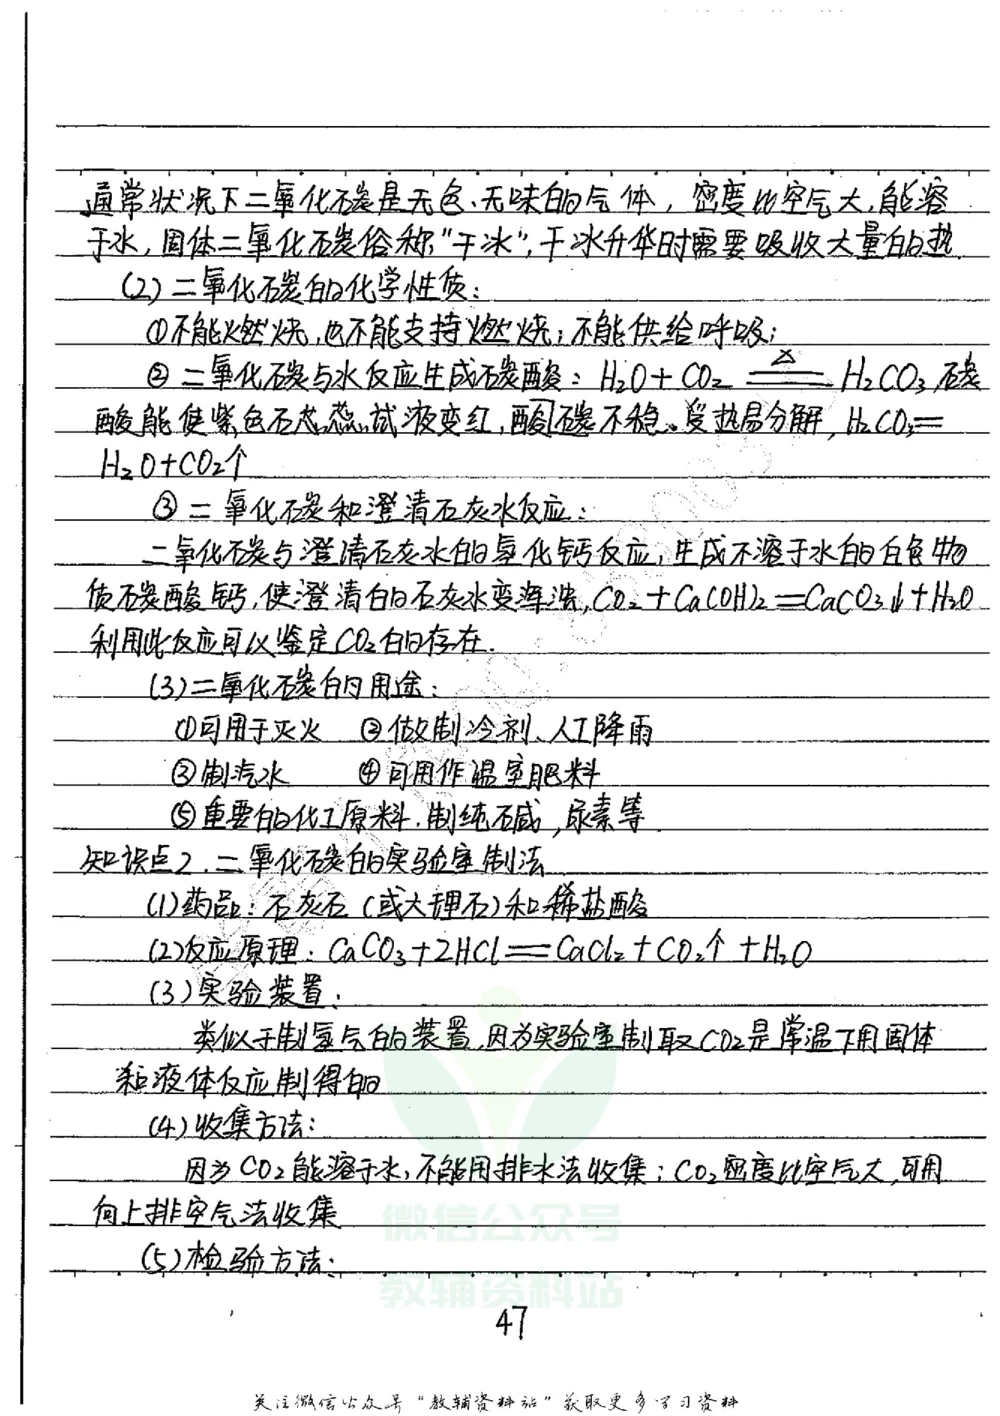 通常状况下二氧化碳是无色、无味的气体，密度比空气大，能溶
于水，固体二氧化碳俗称"干冰"，干冰升华时需要吸收大量的热.
(2)二氧化碳的化学性质：
①不能燃烧，也不能支持燃烧；不能供给呼吸；
②二氧化碳与水反应生成碳酸：H₂O+CO₂ ≜ H₂CO₃,碳
酸能使紫色石蕊试液变红，酸碳不稳。受热易分解，H₂CO₃=
H₂O+CO₂↑
③二氧化碳和澄清石灰水反应：
二氧化碳与澄清石灰水的氢化钙反应，生成不溶于水的白色物
质碳酸钙，使澄清的石灰水变浑浊，CO₂+Ca(OH)₂=CaCO₃↓+H₂O
利用此反应可以鉴定CO₂的存在.
(3)二氧化碳的用途：
①可用于灭火 ②做制冷剂、人工降雨
③制汽水 ④可用作温室肥料
⑤重要的化工原料.制纯碱，尿素等
知识点2.二氧化碳的实验室制法
(1)药品：石灰石（或大理石）和稀盐酸
(2)反应原理：CaCO₃+2HCl=CaCl₂+CO₂↑+H₂O
(3)实验装置：
类似于制氢气的装置，因为实验室制取CO₂是常温下用固体
和液体反应制得的
(4)收集方法：
因为CO₂能溶于水，不能用排水法收集；CO₂密度比空气大，可用
向上排空气法收集
(5)检验方法：
微信公众号
教辅资料站
47
关注微信公众号"教辅资料站"获取更多学习资料